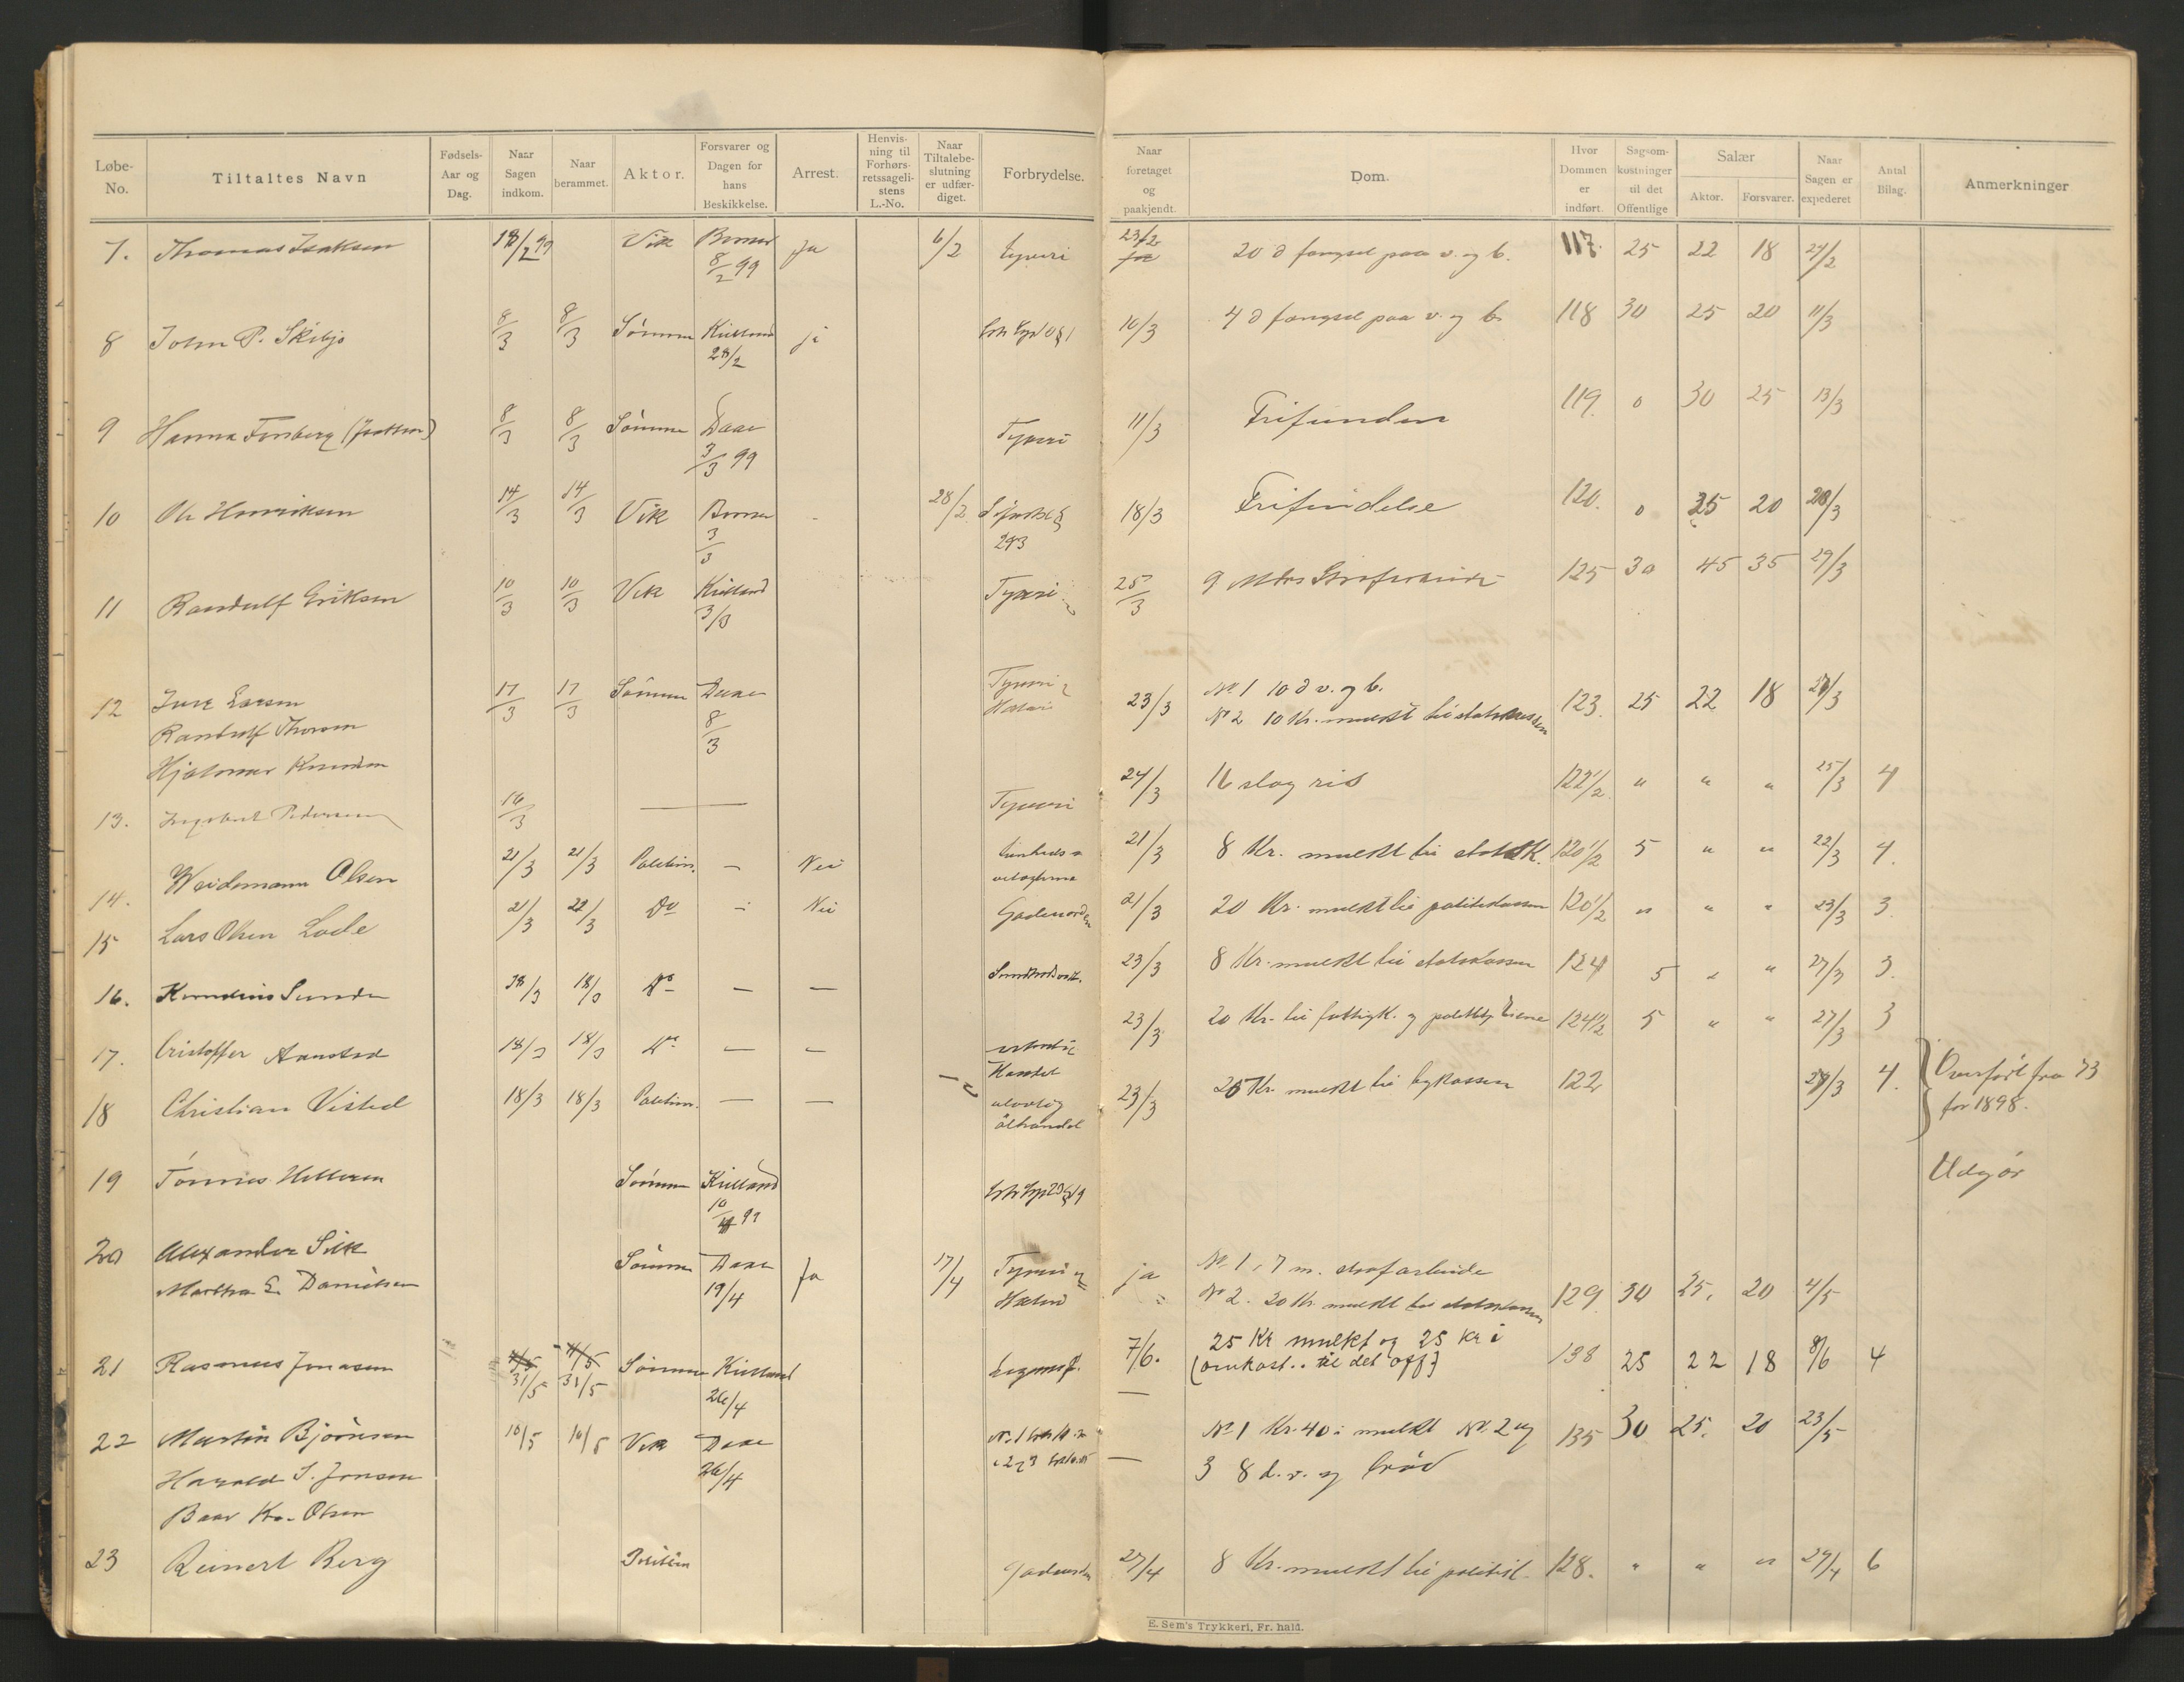 Løbe-No. Tiltaltes Navn Fødsels-Aar og Dag. Naar Sagen indkom. Naar berammet. Aktor. Forsvarer og Dagen for hans Beskikkelse. Arrest. Henvisning til Forhørsretssagelistens L.-No. Naar Tiltalebeslutning er udfærdiget. Forbrydelse. Naar foretaget og paakjendt. Dom. Hvor Dommen er indført. Sagsomkostninger til det Offentlige Salær Aktor. Forsvarer. Naar Sagen er expederet Antal Bilag. Anmerkninger
7. Thomas Isaksen 18/2 99 Vik 8/2 99 Ja 6/2 tyveri 23/2 20 d fængsel paa v. og b. 117. 25 22 18 27/2
8 John P. 8/3 8/3 Sømme Kielland 28/2 ja 10/3 4 d fængsel paa v. og b. 118 30 25 20 11/3
9 Hanna 8/3 8/3 Sømme Daae 3/3 99 Tyveri 11/3 Frifunden 119. 0 30 25 13/3
10 Ole Henriksen 14/3 14/3 Vik 3/3 28/2 293 18/3 Frifindelse 120. 0 25 20 20/3
11 Randulf Eriksen 10/3 10/3 Vik Kielland 3/3 Tyveri 25/3 9 Mdrs Strafarbeide 125 30 45 35 29/3
12 Larsen 17/3 17/3 Sømme Daae 8/3 Tyveri Hæleri 23/3 No. 1 10 d v. og b. 123. 25 22 18 27/3
Randulf Thorsen No 2 10 Kr. mulkt til statskassen
Hjalmar Knudsen
13. Pedersen 16/3 — Tyveri 24/3 16 slag ris 122 1/2 " " " 25/3 4
14. Weidemann Olsen 21/3 21/3 Politim. — Nei 21/3 8 Kr. mulkt til statsk. 120 1/2 5 " " 22/3 4.
15 Lars Olsen Lode 21/3 22/3 Do — Nei Gadeuorden 21/3 20 Kr. mulkt til politikassen 120 1/2 " " " 23/3 3.
16. Sunde 18/3 18/3 Do — — 23/3 8 Kr. mulkt til statskassen 124 5 " " 27/3 3.
17. Cristoffer Aanestad 18/3 18/3 Do — — Handel 23/3 20 Kr. til fattigk. og 124 1/2 5 " " 27/3 3
18 Christian Visted 18/3 18/3 Politim. — — ulovlig ølhandel 23/3 25 Kr. mulkt til bykassen 122 29/3 4. Overført fra 73 for 1898.
19 Tønnes Helleren Sømme Kielland 10/4 99 Udgår
20 Alexander Silk Sømme Daae 19/4 Ja 17/4 Tyveri og Hæleri ja No. 1, 7 m. strafarbeide
Martha E. Danielsen No 2. 20 Kr. mulkt til statskassen 129. 30 25. 20 4/5
21 Rasmus Jonassen 31/5 31/5 Sømme Kielland 26/4 7/6. 25 Kr mulkt og 25 kr i 138 25 22 18 8/6 4
(omkost.. til det off)
22 Martin Bjørnsen 10/5 10/5 Vik Daae 26/4 — No 1 Kr. 40 i mulkt No. 2 og 135 30 25. 20 23/5
Harald S. Jonsen — 3 8 d. v. og brød
Baar Kr. Olsen
23 Reinert Berg Politim Gadeuorden 27/4 8 Kr. mulkt til politik. 128. " " " 29/4 6
E. Sem's Trykkeri, Fr.hald.